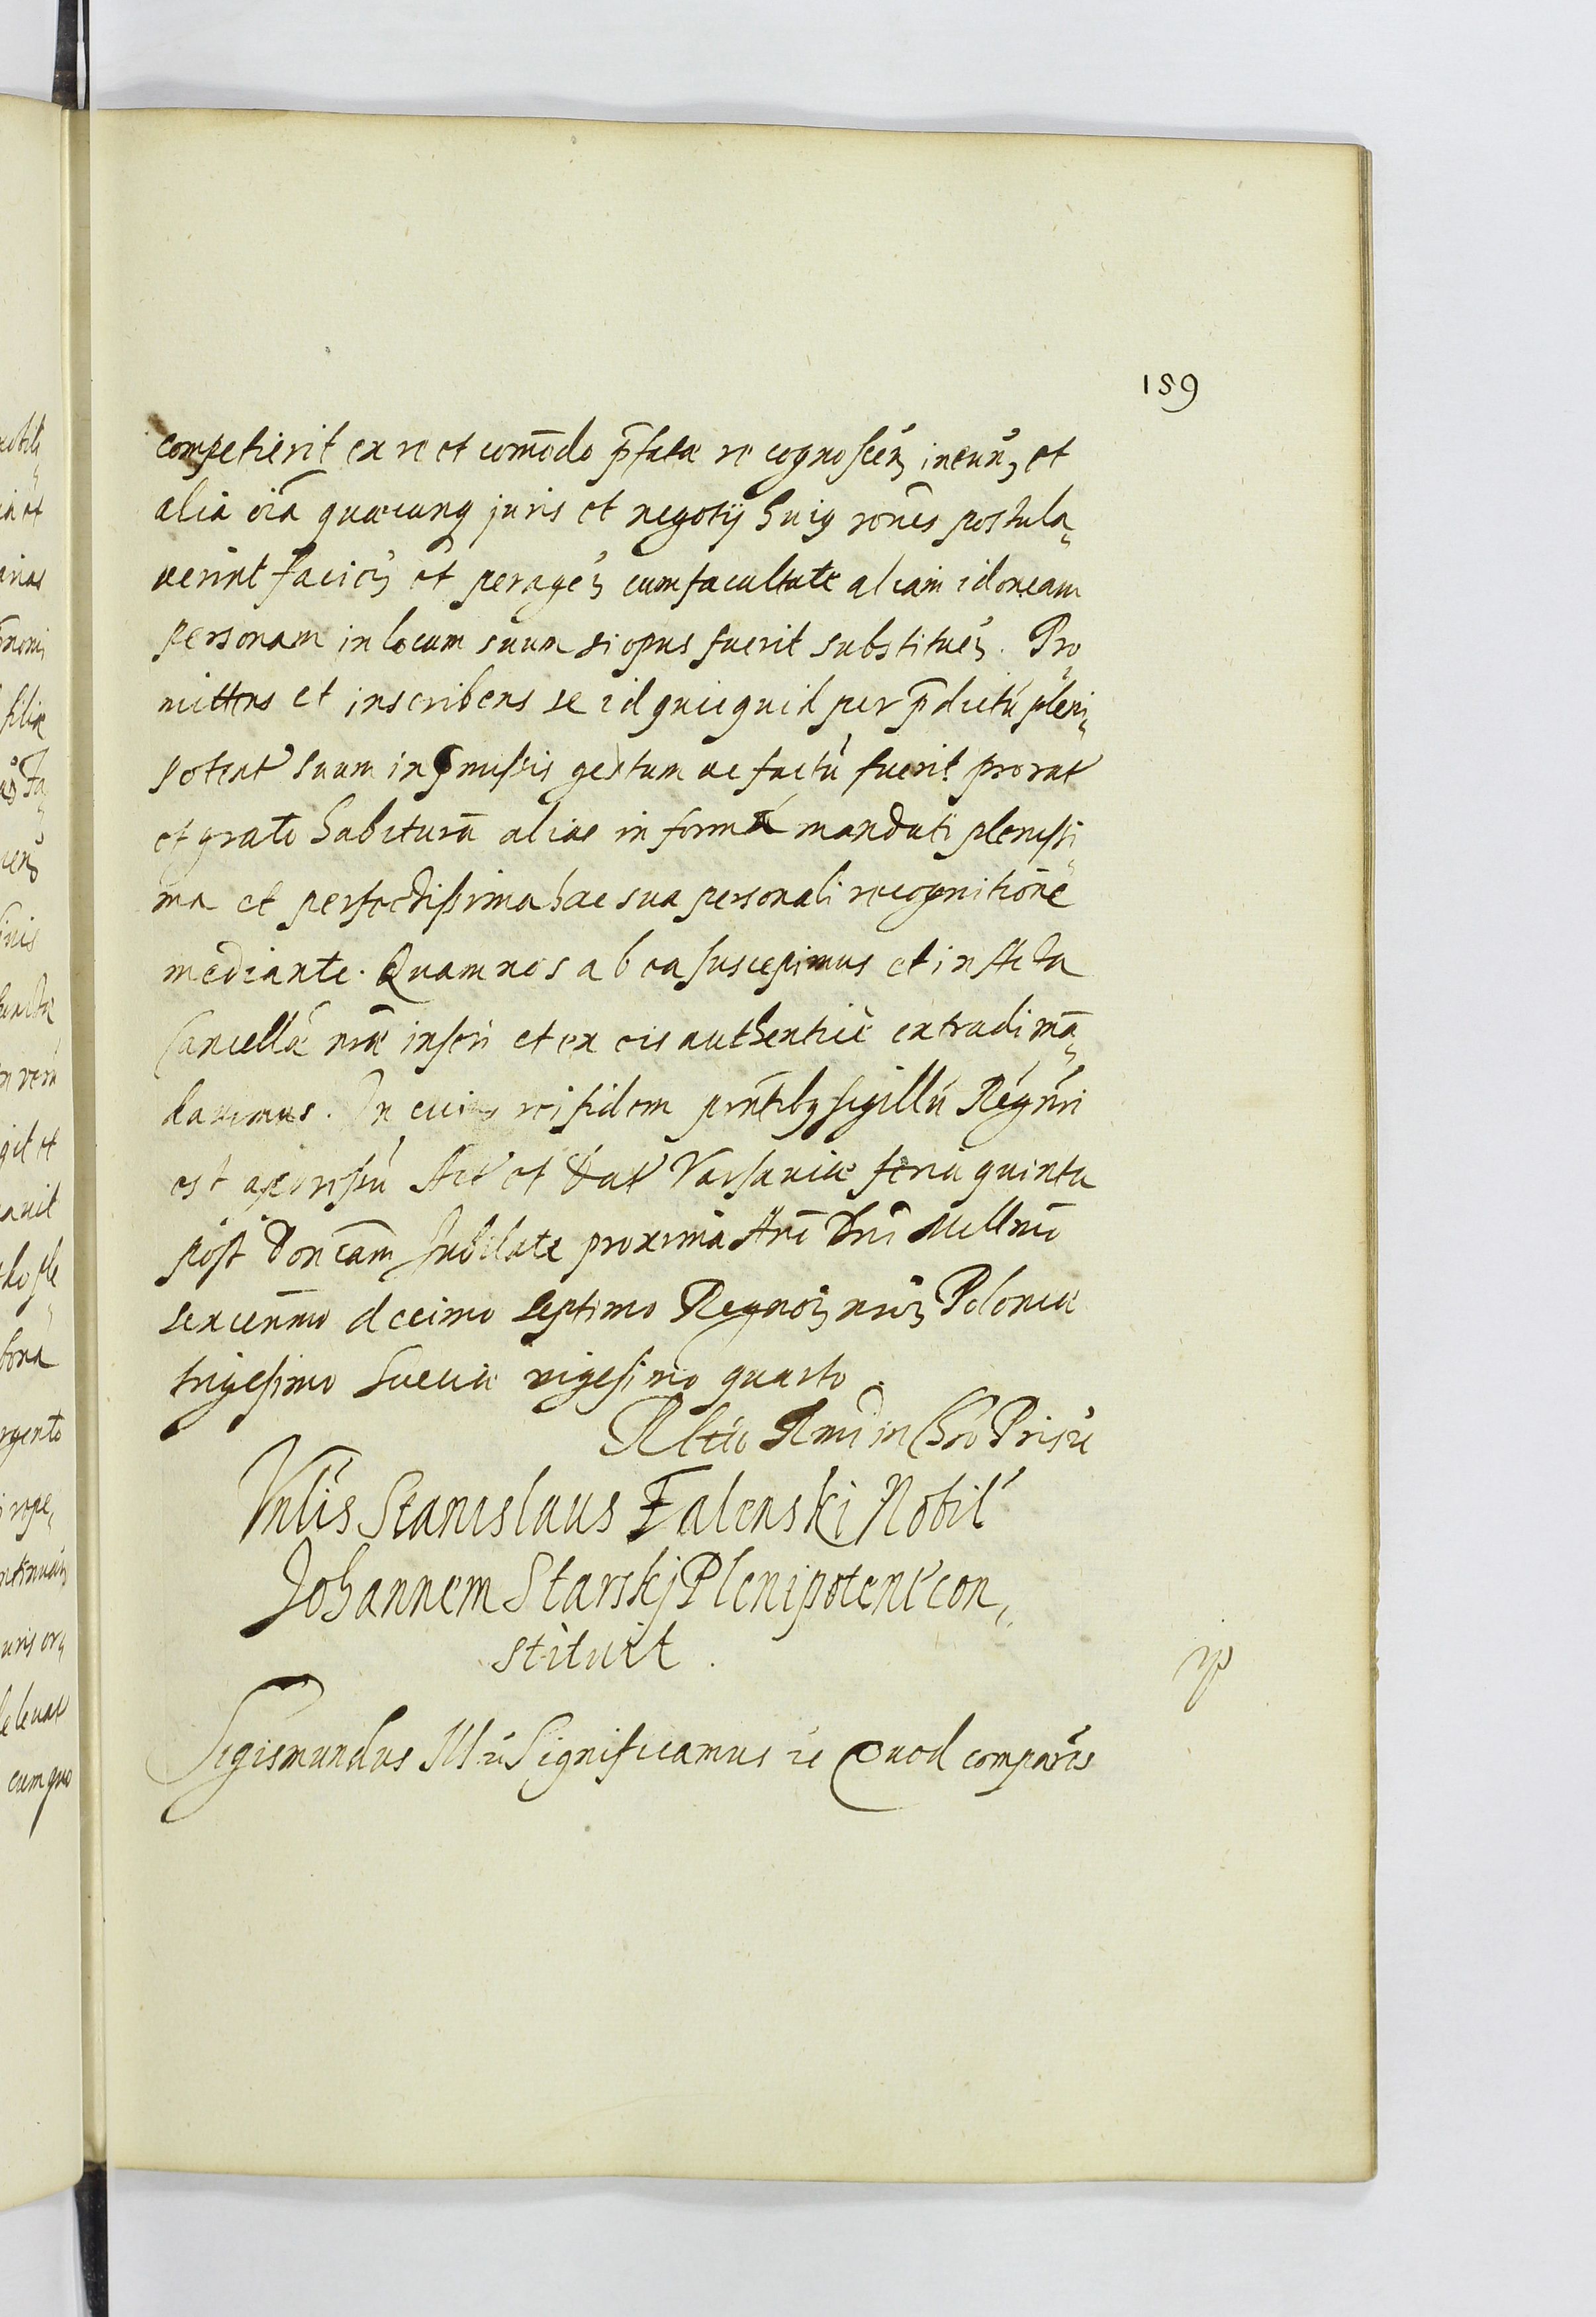 159
competierit ex re et com̄odo p̄fatæ re cognoscēn ineun̄ et
alia oīa quæcunq juris et negotij huiq rōnes postula„
verint facień et peragēn cum facultate aliam idoneam
personam in locum suum si opus fuerit substituēn. Pro„
mittens et inscribens se id quicquid per p̄dictū pleni„
potent suum in p̄missis gestum ac factū fuerit pro rat
et grato habiturā alias in forma mandati plenissi„
ma et perfectissima hac sua personali recognitione
mediante. Quam nos ab ea suscepimus et in Acta
Cancellæ nræ inseri et ex eis authentice extradi mā„
davimus. In cuius rei fidem pn̄tibq sigillū Regn nri
est appressū Act et Dat Varsaviæ feria quinta
post Don̄cam Jubilate proxima Anō Dnī Millmō
sexcenmo dccimo septimo Regnorn nrorn Poloniæ
trigesimo Sueciæ vigesimo quarto.
Rltio Rmi in Chro Pris ec
Vnlis Stanislaus Falenski Nobil
Johannem Starskj Plenipotent con„
stituit.
Sigismundus III ec Significamus ec Quod comparēs